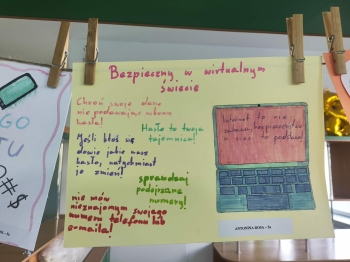 Bezpieczny w wirtualnym
świecie
Chroń swoje dane
nie podawając nikomu
hasła!
Hasło to twoja
tajemnica!
Jeśli ktoś się
dowie jakie masz
hasło, natychmiast
je zmień!
sprawdzaj
podejrzane
numery!
nie mów
nieznajomym swojego
numeru telefonu lub
e-maila!
Internet to nie
zabawa, bezpieczeństwo
to podstawa!
ANTONINA
GO
TU